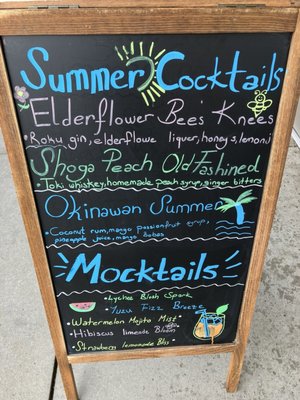 Summer Cocktails
Elderflower Bee's Knees
• Roku gin, elderflowe liquer, honey s, lemoni
Shoga Peach Old Fashioned
• Toki whiskey, homemade peach syrup, ginger bitters
Okinawan Summer
• Coconut rum, mango passionfruit syrup,
pineapple juice, mango bobas
Mocktails
• Lychee Blush Spark
• Yuzu Fizz Breeze
• Watermelon Mojito Mist
• Hibiscus limeade Bloom
• Strawberry lemonade Bliss